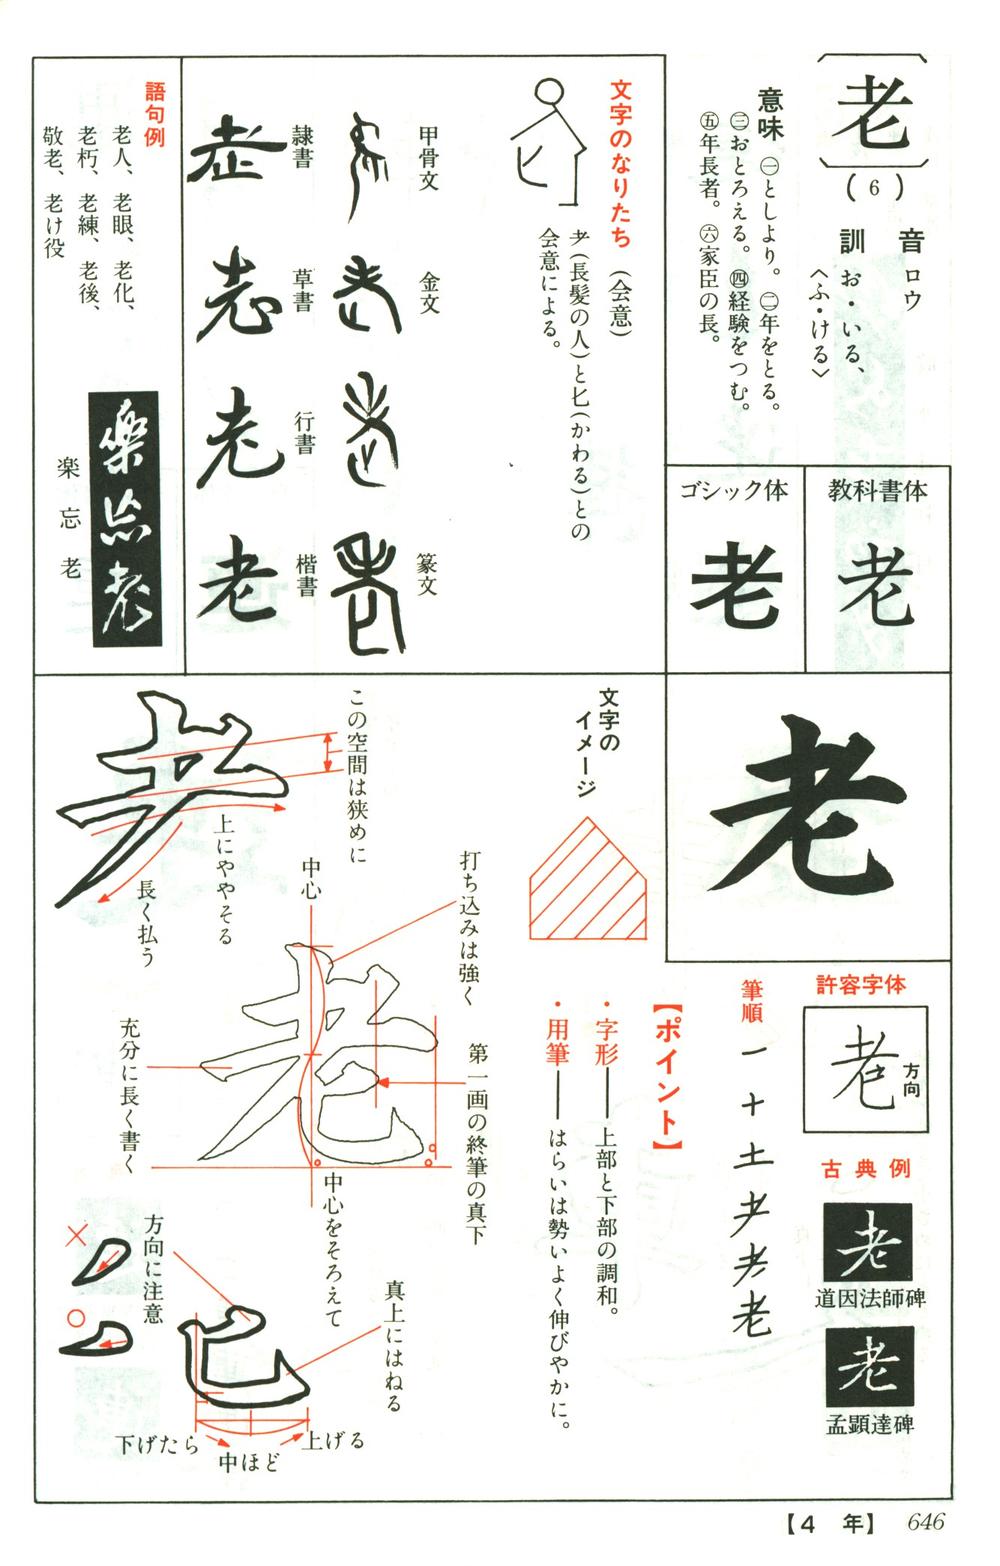 老
(6)
音 ロウ
訓 お・いる、
〈ふ・ける〉
意味 ㊀としより。㊁年をとる。
㊂おとろえる。㊃経験をつむ。
㊄年長者。㊅家臣の長。
教科書体
老
ゴシック体
老
文字のなりたち (会意)
耂(長髪の人)と匕(かわる)との
会意による。
甲骨文
金文
篆文
隷書
草書
行書
楷書
老
語句例
老人、老眼、老化、
老朽、老練、老後、
敬老、老け役
楽忘老
楽忘老
老
許容字体
老
方向
古典例
老
道因法師碑
老
孟顕達碑
筆順
一 十 土 耂 老
【ポイント】
・字形―上部と下部の調和。
・用筆―はらいは勢いよく伸びやかに。
文字の
イメージ
この空間は狭めに
上にややそる
長く払う
中心
打ち込みは強く
第一画の終筆の真下
充分に長く書く
中心をそろえて
方向に注意
×
○
真上にはねる
下げたら
中ほど
上げる
【4 年】 646